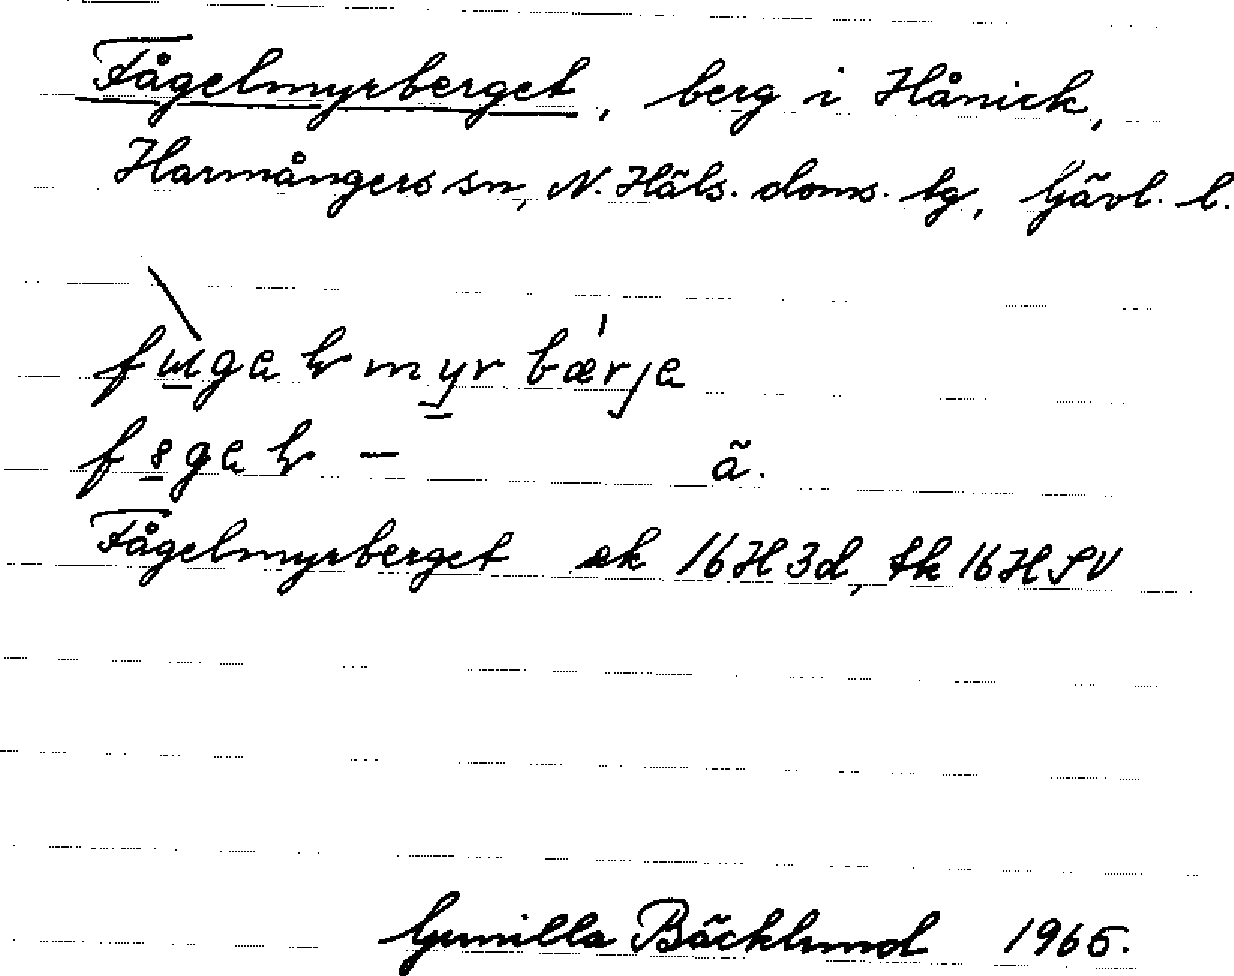 Fågelmyrberget, berg i Hånick,
Harmångers sn, N. Häls. doms. tg, Gävl. l.
myr bærje
ä.
Fågelmyrberget ek 16H3d, tk 16H SV
Gunilla Bäcklund 1965.